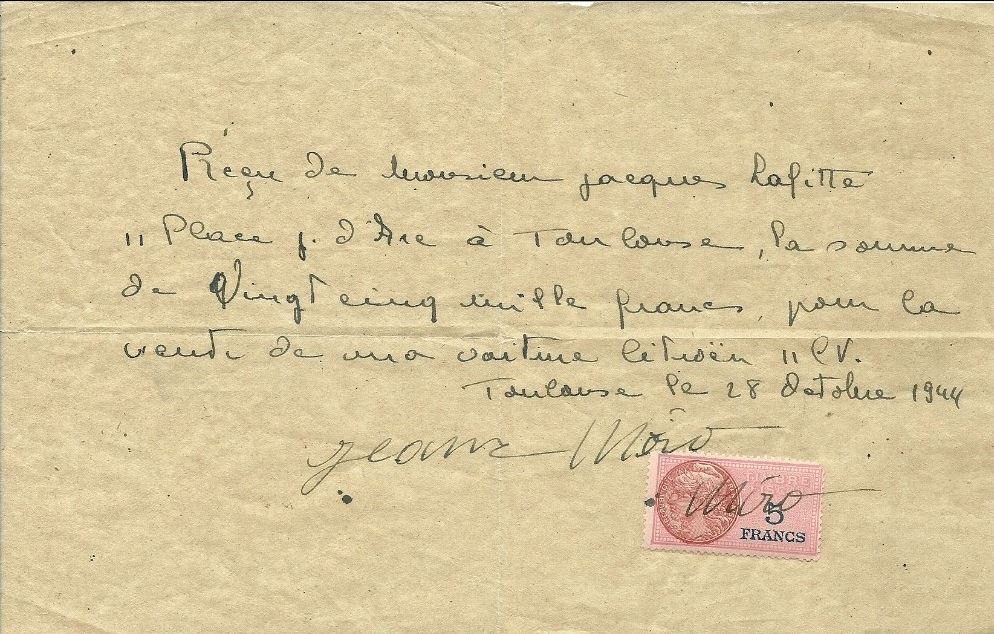 Reçu de Monsieur jacques Lafitte
11 Place j. d'Arc à Toulouse, la somme
de Vingt cinq mille francs, pour la
vente de ma voiture Citroën 11 CV.
Toulouse le 28 Octobre 1944
Jeanz Miró
Miró
5
FRANCS